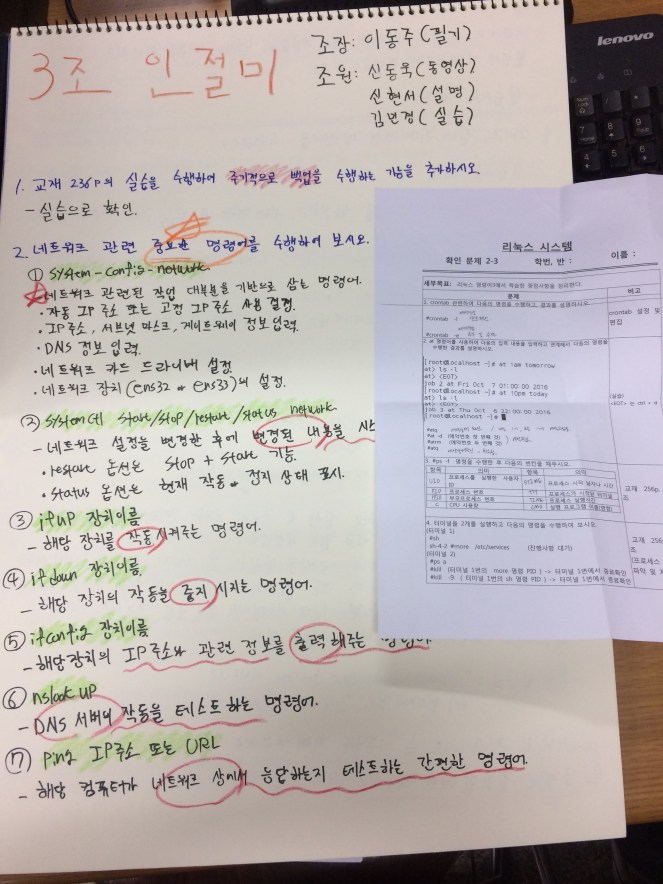 3조 인절미
조장: 이동주(필기)
조원: 신동욱(동영상)
신현서(설명)
김민경(실습)
1. 교재 236p의 실습을 수행하여 주기적으로 백업을 수행하는 기능을 추가하시오.
- 실습으로 확인.
2. 네트워크 관련 중요한 명령어를 수행하여 보시오.
① system-config-network
네트워크 관련된 작업 대부분을 기반으로 삼는 명령어.
· 자동 IP 주소 또는 고정 IP주소 사용 결정.
· IP주소, 서브넷 마스크, 게이트웨이 정보 입력.
· DNS 정보 입력.
· 네트워크 카드 드라이버 설정.
· 네트워크 장치(ens32 or ens33)의 설정.
② systemctl start/stop/restart/status network
- 네트워크 설정을 변경한 후에 변경된 내용을 시스
· restart 옵션은 stop + start 기능.
· status 옵션은 현재 작동 or 정지 상태 표시.
③ ifup 장치이름
- 해당 장치를 작동시켜주는 명령어.
④ ifdown 장치이름
- 해당 장치의 작동을 중지 시키는 명령어.
⑤ ifconfig 장치이름
- 해당장치의 IP주소와 관련 정보를 출력해주는 명령어.
⑥ nslookup
- DNS 서버의 작동을 테스트하는 명령어.
⑦ ping IP주소 또는 URL
- 해당 컴퓨터가 네트워크 상에서 응답하는지 테스트하는 간편한 명령어.
lenovo
리눅스 시스템
확인 문제 2-3 학번, 반 : 이름 :
세부목표: 리눅스 명령어3에서 학습한 중점사항을 정리한다.
문제 비고
1. crontab 관련하여 다음의 명령을 수행하고, 결과를 설명하시오.
#crontab -l
#crontab -e
crontab 설정 및
편집
2. at 명령어를 사용하여 다음의 입력 내용을 입력하고 관계해서 다음의 명령을
수행한 결과를 설명하시오.
[root@localhost ~]# at 1am tomorrow
at> ls -l
at> <EOT>
job 2 at Fri Oct 7 01:00:00 2016
[root@localhost ~]# at 10pm today
at> la -l
at> <EOT>
job 3 at Thu Oct 6 22:00:00 2016
[root@localhost ~]#
<EOT> 는 ctrl + d
#atq
#at -d (예약번호 첫 번째 것)
#atrm (예약번호 두 번째 것)
#atq
3. #ps -l 명령을 수행한 후 다음의 빈칸을 채우시오.
항목 의미 항목 의미
UID 프로세스를 실행한 사용자 ID STIME 프로세스 시작 날짜나 시간
PID 프로세스 번호 TTY 프로세스가 시작된 터미널
PPID 부모프로세스 번호 TIME 프로세스 실행시간
C CPU 사용량 CMD 실행 프로그램 이름(명령)
교재 256p.
4. 터미널을 2개를 실행하고 다음의 명령을 수행하여 보시오.
(터미널 1)
#sh
sh-4.2 #more /etc/services (진행사항 대기)
(터미널 2)
#ps a
#kill (터미널 1번의 more 명령 PID ) -> 터미널 1번에서 종료확인
#kill -9 ( 터미널 1번의 sh 명령 PID ) -> 터미널 1번에서 종료확인
교재 256
조
(프로세스
파악 및 제